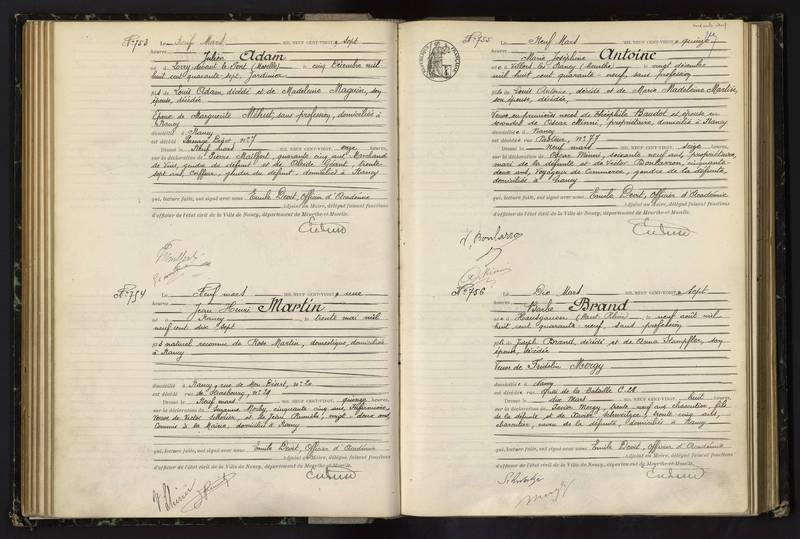 N° 753 Le Neuf Mars MIL NEUF CENT-VINGT, à sept
heures Julien Adam
né à Lorry devant le Pont (Moselle) le cinq Décembre mil
huit cent quarante sept, Jardinier
fils de Louis Adam décédé et de Madeleine Maguin, son
épouse, décédée
Epoux de Marguerite sans profession, domiciliée à
Nancy
domicilié à Nancy
est décédé Bizot n° 7
Dressé le Neuf mars MIL NEUF CENT-VINGT, onze heures,
sur la déclaration de Pierre Mailfert, quarante cinq ans, Marchand
de Vins, gendre du défunt et de Gérant, trente
sept ans, Coiffeur, gendre du défunt, domiciliés à Nancy
qui, lecture faite, ont signé avec nous Emile Devit, Officier d'Académie
Adjoint au Maire, délégué faisant fonctions
d'officier de l'état civil de la Ville de Nancy, département de Meurthe-et-Moselle.
N° 754 Le Neuf mars MIL NEUF CENT-VINGT, à une
heures Jean Henri Martin
né à Nancy le trente mai mil
neuf cent dix sept
fils naturel reconnu de Rose Martin, domestique, domiciliée
à Nancy
domicilié à Nancy, rue de Mon Désert, n° 20
est décédé rue de Strasbourg, n° 29
Dressé le Neuf mars MIL NEUF CENT-VINGT, quinze heures,
sur la déclaration de Suzanne cinquante cinq ans, Infirmière,
Veuve de Victor et de Jean vingt deux ans,
Commis à la Mairie, domiciliés à Nancy
qui, lecture faite, ont signé avec nous Emile Devit, Officier d'Académie
Adjoint au Maire, délégué faisant fonctions
d'officier de l'état civil de la Ville de Nancy, département de Meurthe-et-Moselle.
N° 755 Le Neuf Mars MIL NEUF CENT-VINGT, à quinze
heures Marie Joséphine Antoine
née à Villers les Nancy (Meurthe) le vingt décembre
mil huit cent quarante neuf, sans profession
fille de Louis Antoine, décédé et de Marie Madeleine Martin,
son épouse, décédée,
Veuve en premières noces de Théophile Baudot et épouse en
secondes de Oscar Minni, propriétaire, domicilié à Nancy
domiciliée à Nancy
est décédée rue Pasteur, n° 77
Dressé le neuf mars MIL NEUF CENT-VINGT, seize heures,
sur la déclaration de Oscar Minni, soixante neuf ans, propriétaire,
mari de la défunte et de Victor cinquante
deux ans, Voyageur de Commerce, gendre de la défunte,
domiciliés à Nancy
qui, lecture faite, ont signé avec nous Emile Devit, Officier d'Académie
Adjoint au Maire, délégué faisant fonctions
d'officier de l'état civil de la Ville de Nancy, département de Meurthe-et-Moselle.
N° 756 Le Dix Mars MIL NEUF CENT-VINGT, à sept
heures Barbe Brand
née à Hausgauen (Haut Rhin) le neuf août mil
huit cent quarante neuf, sans profession
fille de Joseph Brand, décédé et de Anna Stampfler, son
épouse, décédée
Veuve de Fridolin Mergy
domiciliée à Nancy
est décédée Quai de la Bataille C.28
Dressé le dix Mars MIL NEUF CENT-VINGT, huit heures,
sur la déclaration de Xavier Mergy, trente neuf ans charcutier, fils
de la défunte et de Schweitzer, trente cinq ans,
charcutier, neveu de la défunte, domiciliés à Nancy
qui, lecture faite, ont signé avec nous Emile Devit, Officier d'Académie
Adjoint au Maire, délégué faisant fonctions
d'officier de l'état civil de la Ville de Nancy, département de Meurthe-et-Moselle.